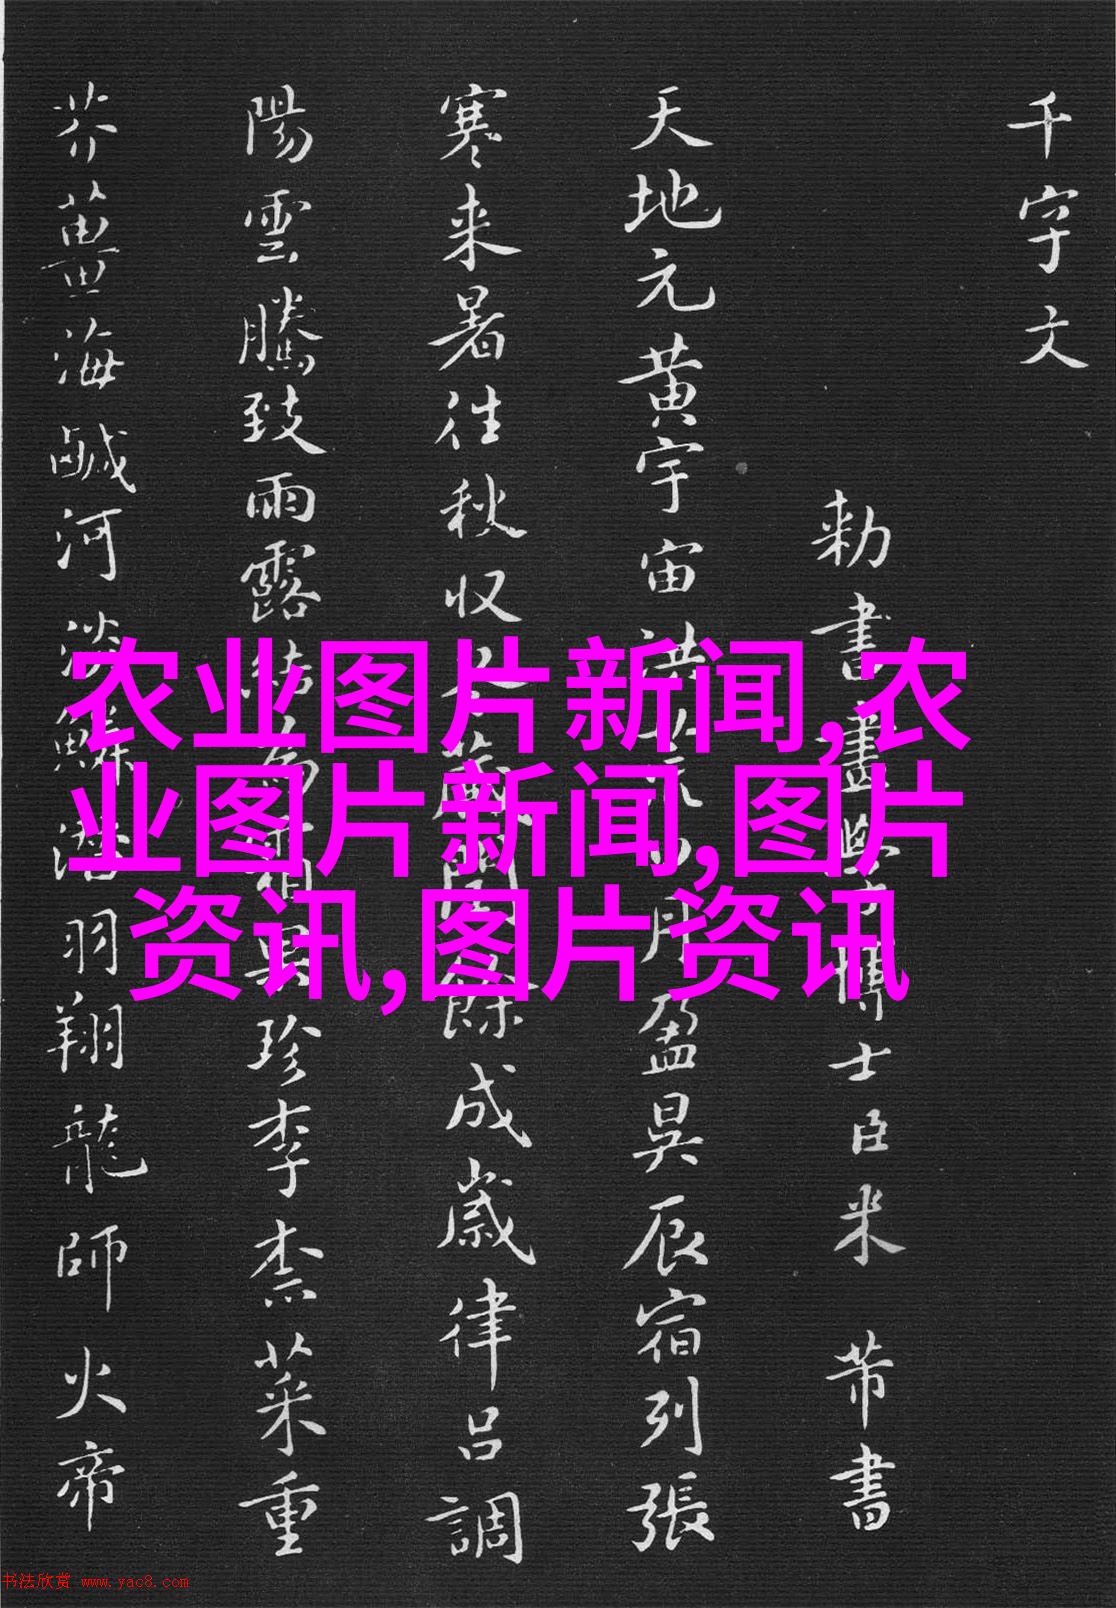 千字文
勅書畫學博士臣米芾書
天地元黄宇宙洪荒日月盈昃辰宿列張
寒来暑往秋収冬藏閏餘成歲律吕調
陽雲騰致雨露結為霜果珍李柰菜重
芥薑海鹹河淡鱗潛羽翔龍師火帝
农业图片新闻,农
业图片新闻,图片
资讯,图片资讯
书法欣赏 www.yac8.com